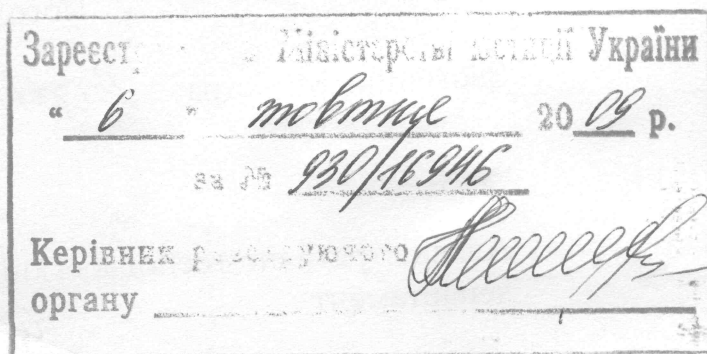 Зареєстровано в Міністерстві юстиції України
“ 6 ” жовтня 2009 р.
за № 930/16946
Керівник реєструючого
органу